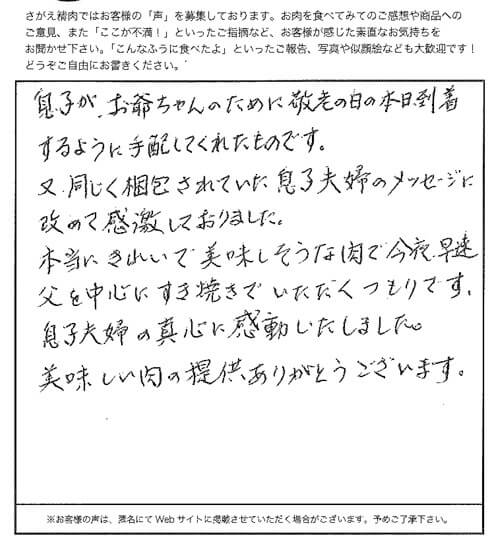 さがえ精肉ではお客様の「声」を募集しております。お肉を食べてみてのご感想や商品への
ご意見、また「ここが不満！」といったご指摘など、お客様が感じた素直なお気持ちを
お聞かせ下さい。「こんなふうに食べたよ」といったご報告、写真や似顔絵なども大歓迎です！
どうぞご自由にお書きください。
息子が、お爺ちゃんのために敬老の日の本日到着
するように手配してくれたものです。
又、同じく梱包されていた息子夫婦のメッセージに
改めて感激しておりました。
本当にきれいで美味しそうな肉で今夜、早速
父を中心にすき焼きでいただくつもりです。
息子夫婦の真心に感動いたしました。
美味しい肉の提供、ありがとうございます。
※お客様の声は、匿名にてWebサイトに掲載させていただく場合がございます。予めご了承下さい。